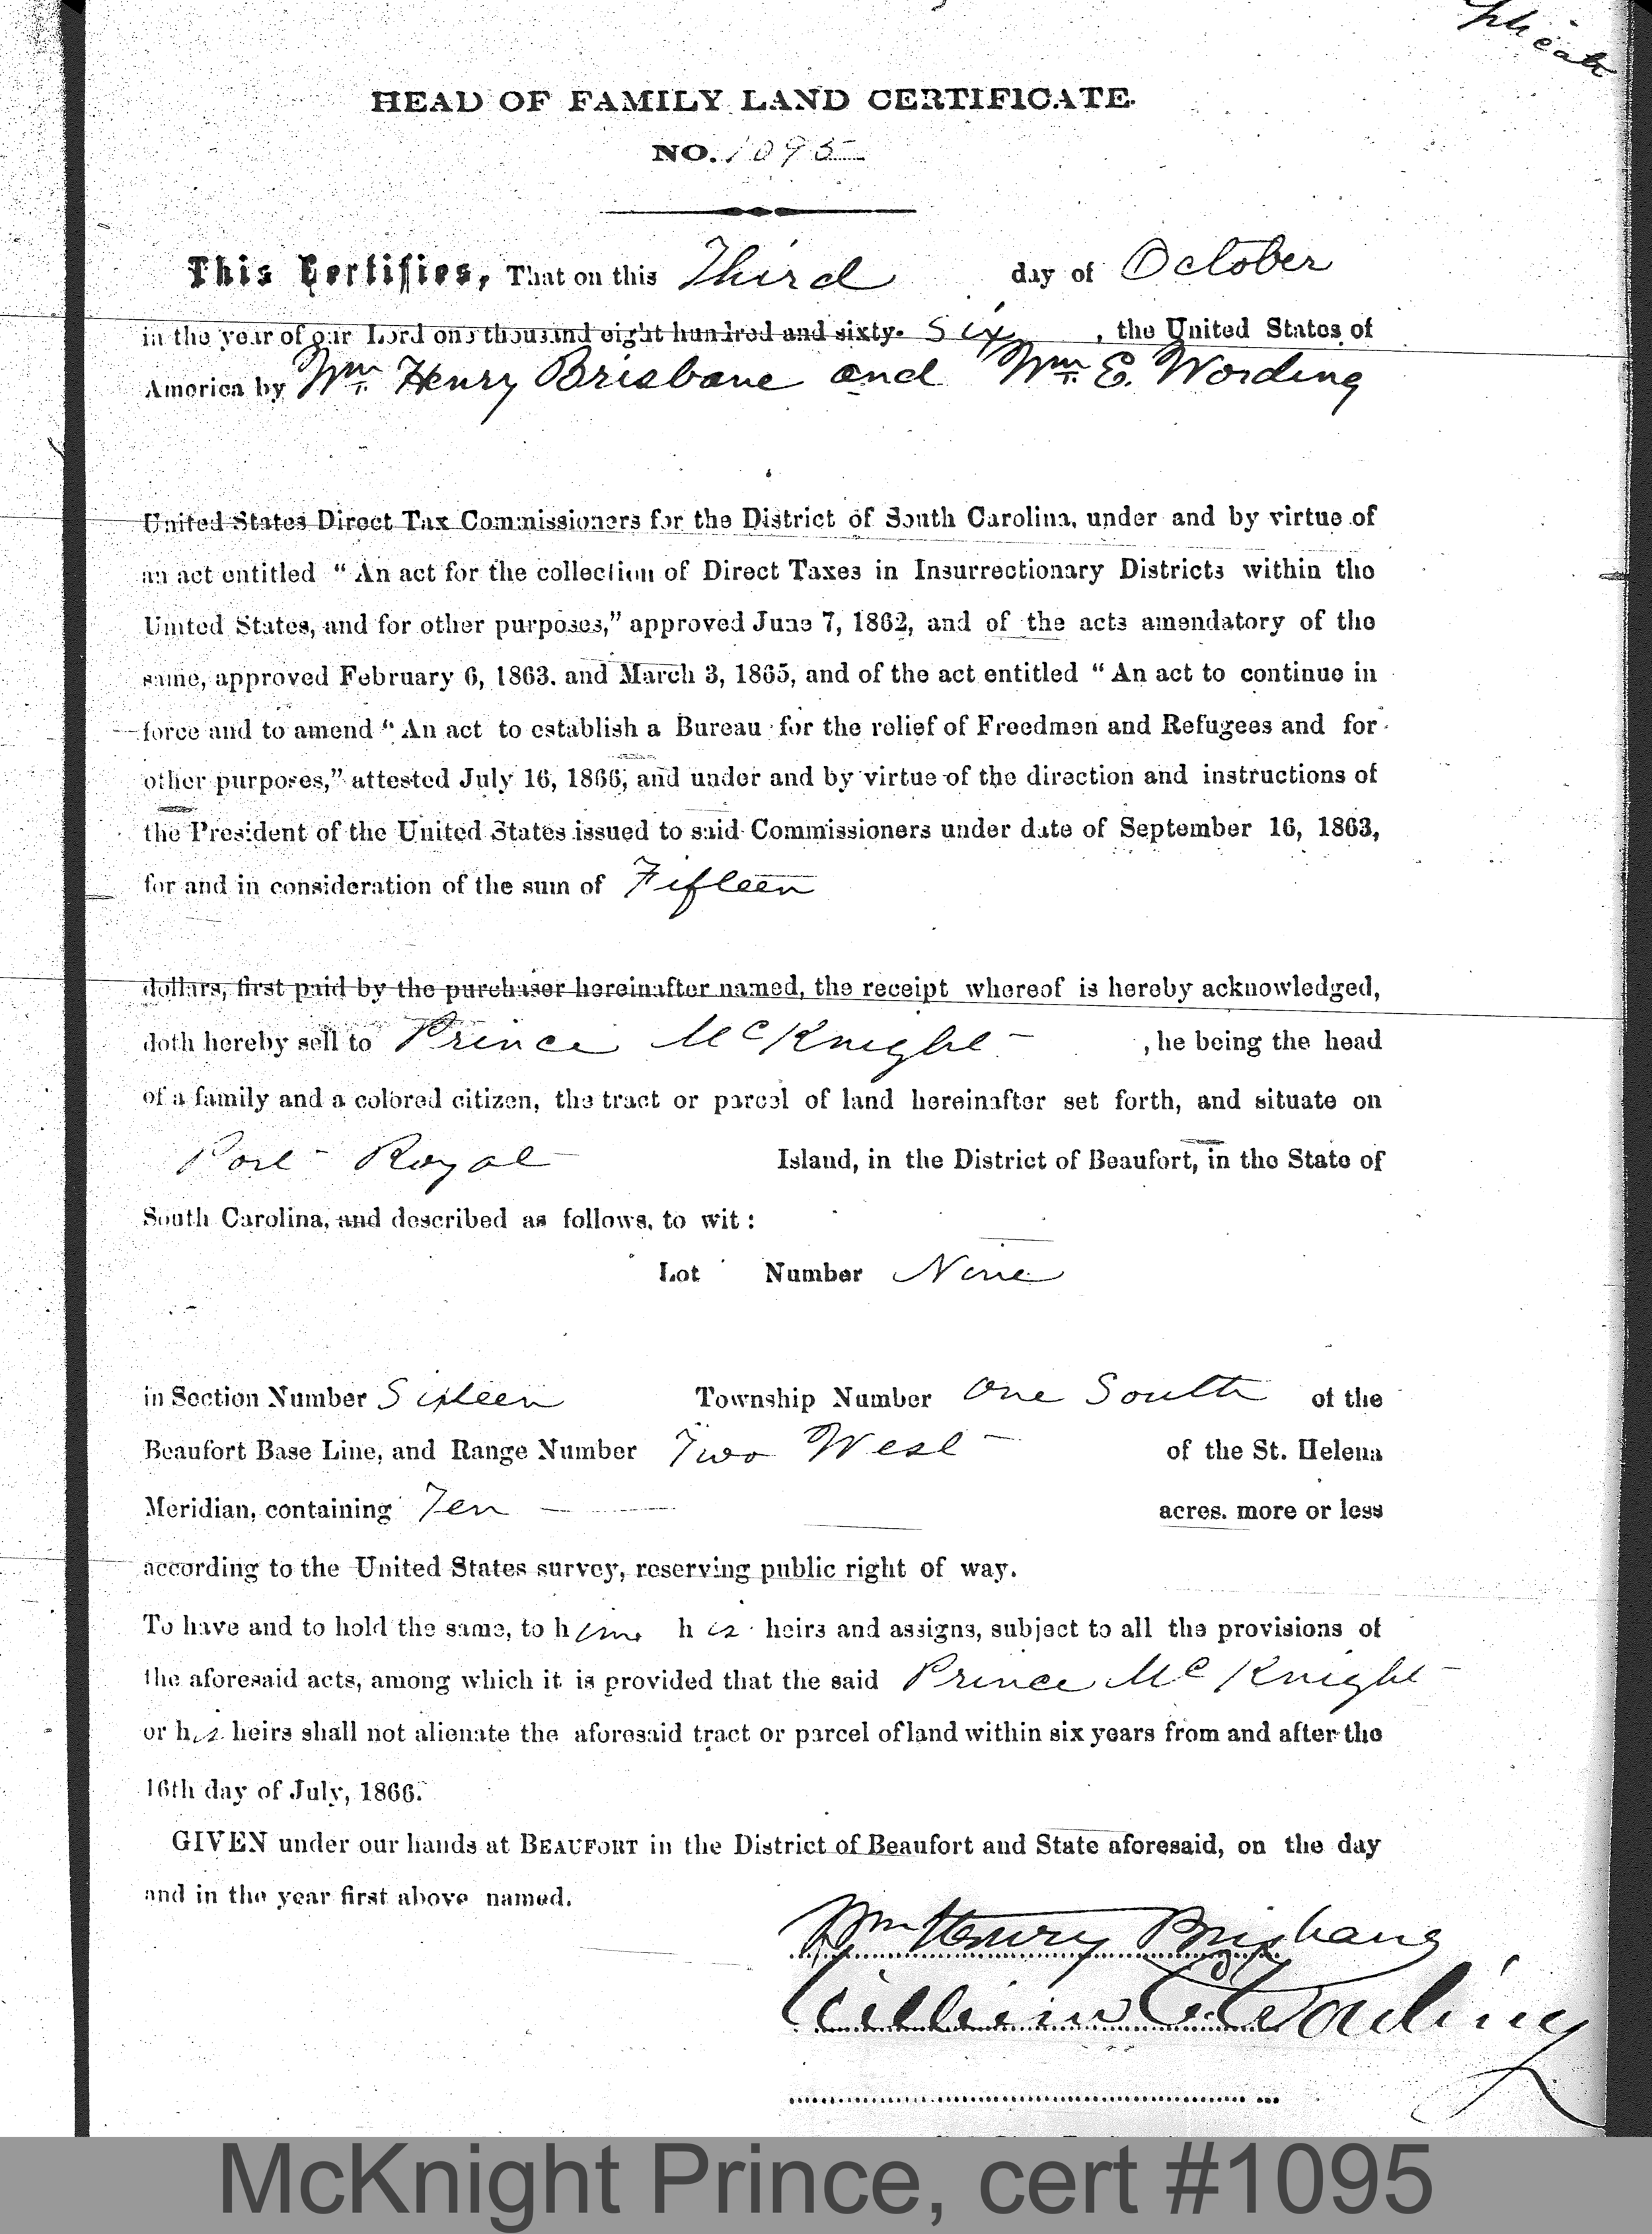 plicate
HEAD OF FAMILY LAND CERTIFICATE.
NO. 1095
This Certifies, That on this Third day of October
in the year of our Lord one thousand eight hundred and sixty- six, the United States of
America by Wm. Henry Brisbane and Wm. E. Wording
United States Direct Tax Commissioners for the District of South Carolina, under and by virtue of
an act entitled “An act for the collection of Direct Taxes in Insurrectionary Districts within the
United States, and for other purposes,” approved June 7, 1862, and of the acts amendatory of the
same, approved February 6, 1863. and March 3, 1865, and of the act entitled “An act to continue in
force and to amend “An act to establish a Bureau for the relief of Freedmen and Refugees and for
other purposes,” attested July 16, 1866, and under and by virtue of the direction and instructions of
the President of the United States issued to said Commissioners under date of September 16, 1863,
for and in consideration of the sum of Fifteen
dollars, first paid by the purchaser hereinafter named, the receipt whereof is hereby acknowledged,
doth hereby sell to Prince McKnight, he being the head
of a family and a colored citizen, the tract or parcel of land hereinafter set forth, and situate on
Port Royal Island, in the District of Beaufort, in the State of
South Carolina, and described as follows, to wit:
Lot Number Nine
in Section Number Sixteen Township Number One South of the
Beaufort Base Line, and Range Number Two West of the St. Helena
Meridian, containing Ten acres. more or less
according to the United States survey, reserving public right of way.
To have and to hold the same, to him, his heirs and assigns, subject to all the provisions of
the aforesaid acts, among which it is provided that the said Prince McKnight
or his heirs shall not alienate the aforesaid tract or parcel of land within six years from and after the
16th day of July, 1866.
GIVEN under our hands at BEAUFORT in the District of Beaufort and State aforesaid, on the day
and in the year first above named.
Wm Henry Brisbane
William E. Wording
McKnight Prince, cert #1095